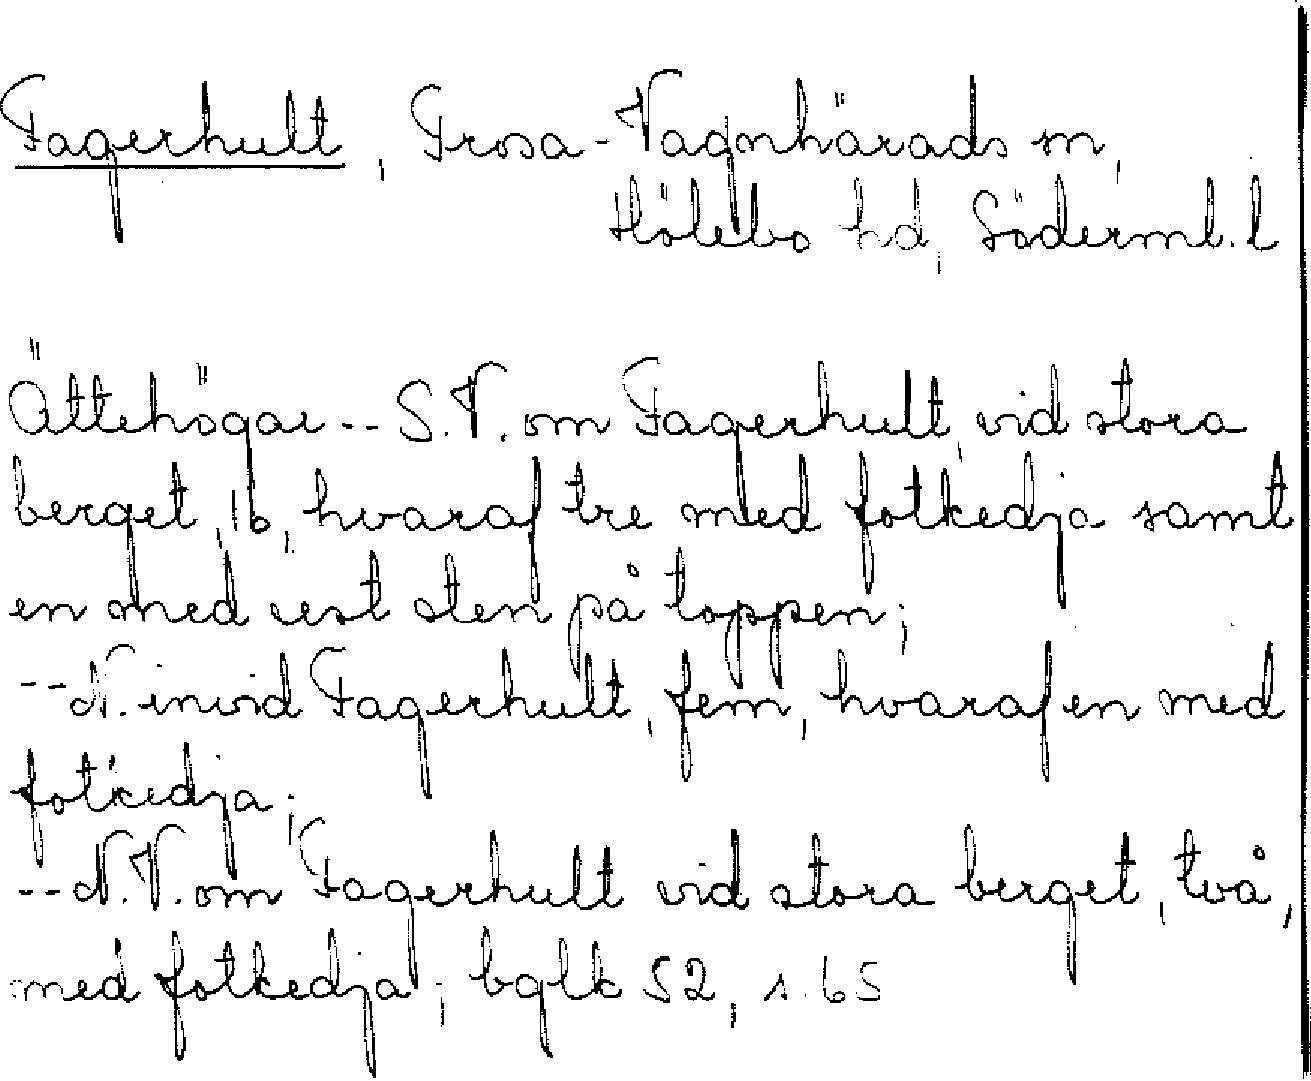 Fagerhult, Trosa-Vagnhärads sn,
Hölebo hd, Söderml. l
Ättehögar -- S.V. om Fagerhult, vid stora
berget, 16, hvaraf tre med fotkedja samt
en med rest sten på toppen;
-- N. invid Fagerhult, fem, hvaraf en med
fotkedja;
-- N.V. om Fagerhult vid stora berget, två,
med fotkedja; bglk S2, s. 65